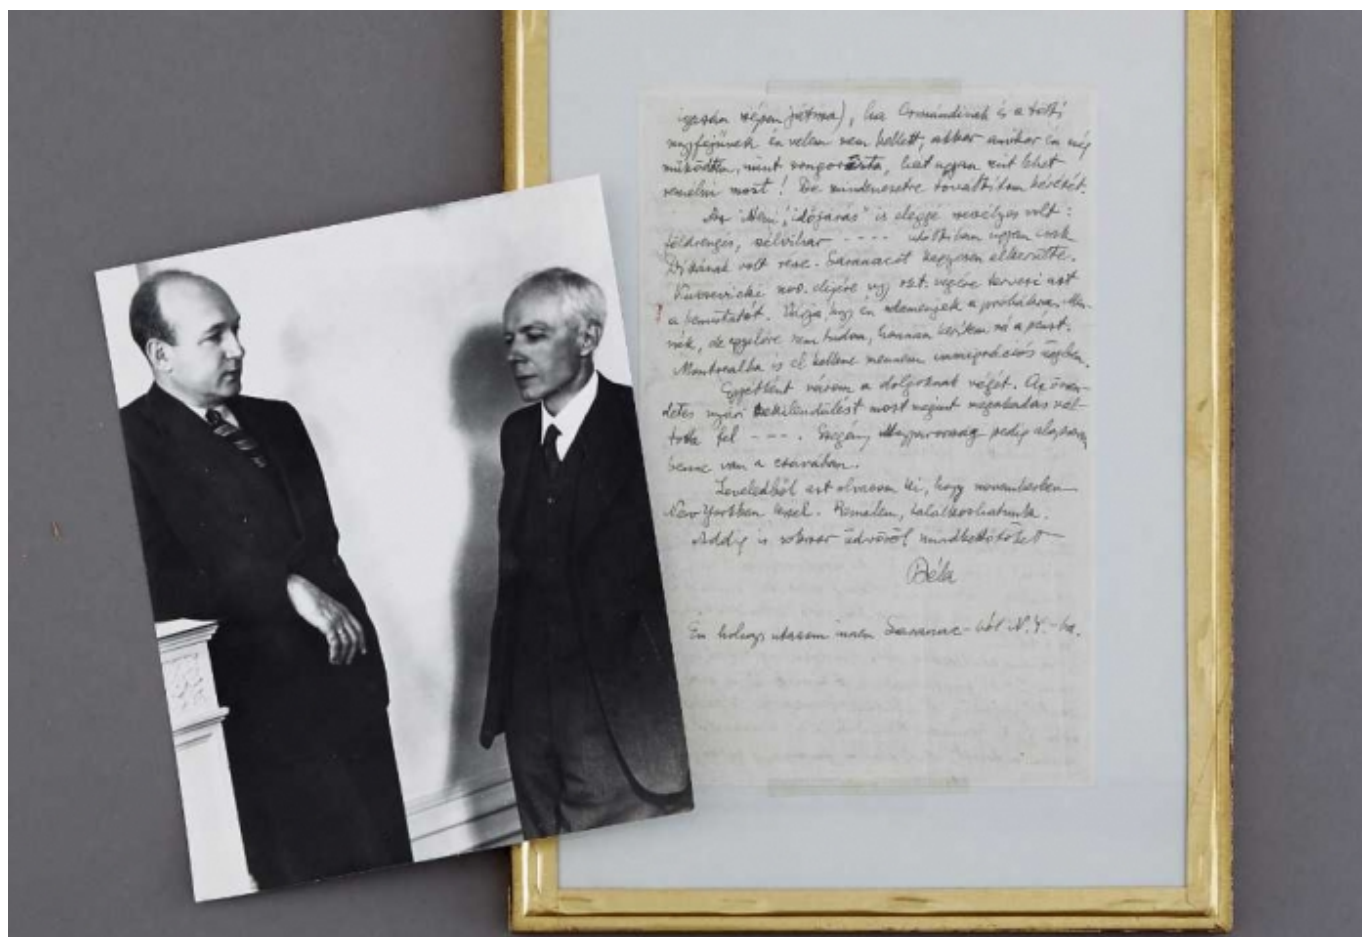 igazán szépen játsza), ha Ormándinak és a többi
nagyfejűnek én velem nem kellett, akkor amikor én még
működtem, mint zongorista, hát ugyan mit lehet
remélni most! De mindenesetre továbbítom kérését.
Az "időjárás" is eléggé veszélyes volt:
földrengés, szélvihar - - - - utóbbiban ugyan csak
Ditának volt része. Saranacot kegyesen elkerülte.
nov. elejére vagy szt. végére tervezi azt
a bemutatót. hogy én odamenjek a próbákra.
de egyelőre nem tudom, honnan kerítem rá a pénzt.
Montrealba is el kellene mennem immigrációs ügyben.
Egyébként várom a dolgoknak végét. Az örven-
detes nyári kilendülést most megint megakadás vál-
totta fel - - - . Szegény Magyarország pedig alaposan
benne van a csávában.
Leveledből azt olvasom ki, hogy novemberben
New Yorkban leszel. Remélem, találkozhatunk.
Addig is sokszor üdvözöl mindkettőtöket
Béla
Én holnap utazom innen Saranac-ból N.Y.-ba.